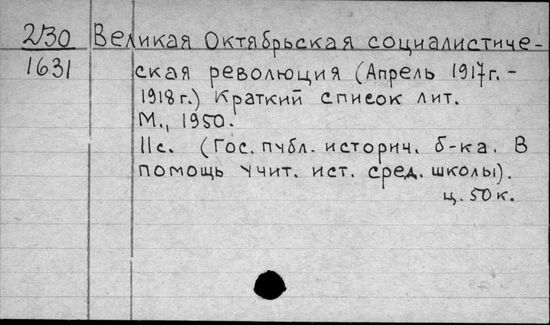 2/30 Великая Октябрьская социалистиче-
1631 ская революция (Апрель 1917г. -
1918г.) Краткий список лит.
М., 1950.
11с. (Гос. публ. историч. б-ка. В
помощь учит. ист. сред. школы).
ц. 50к.